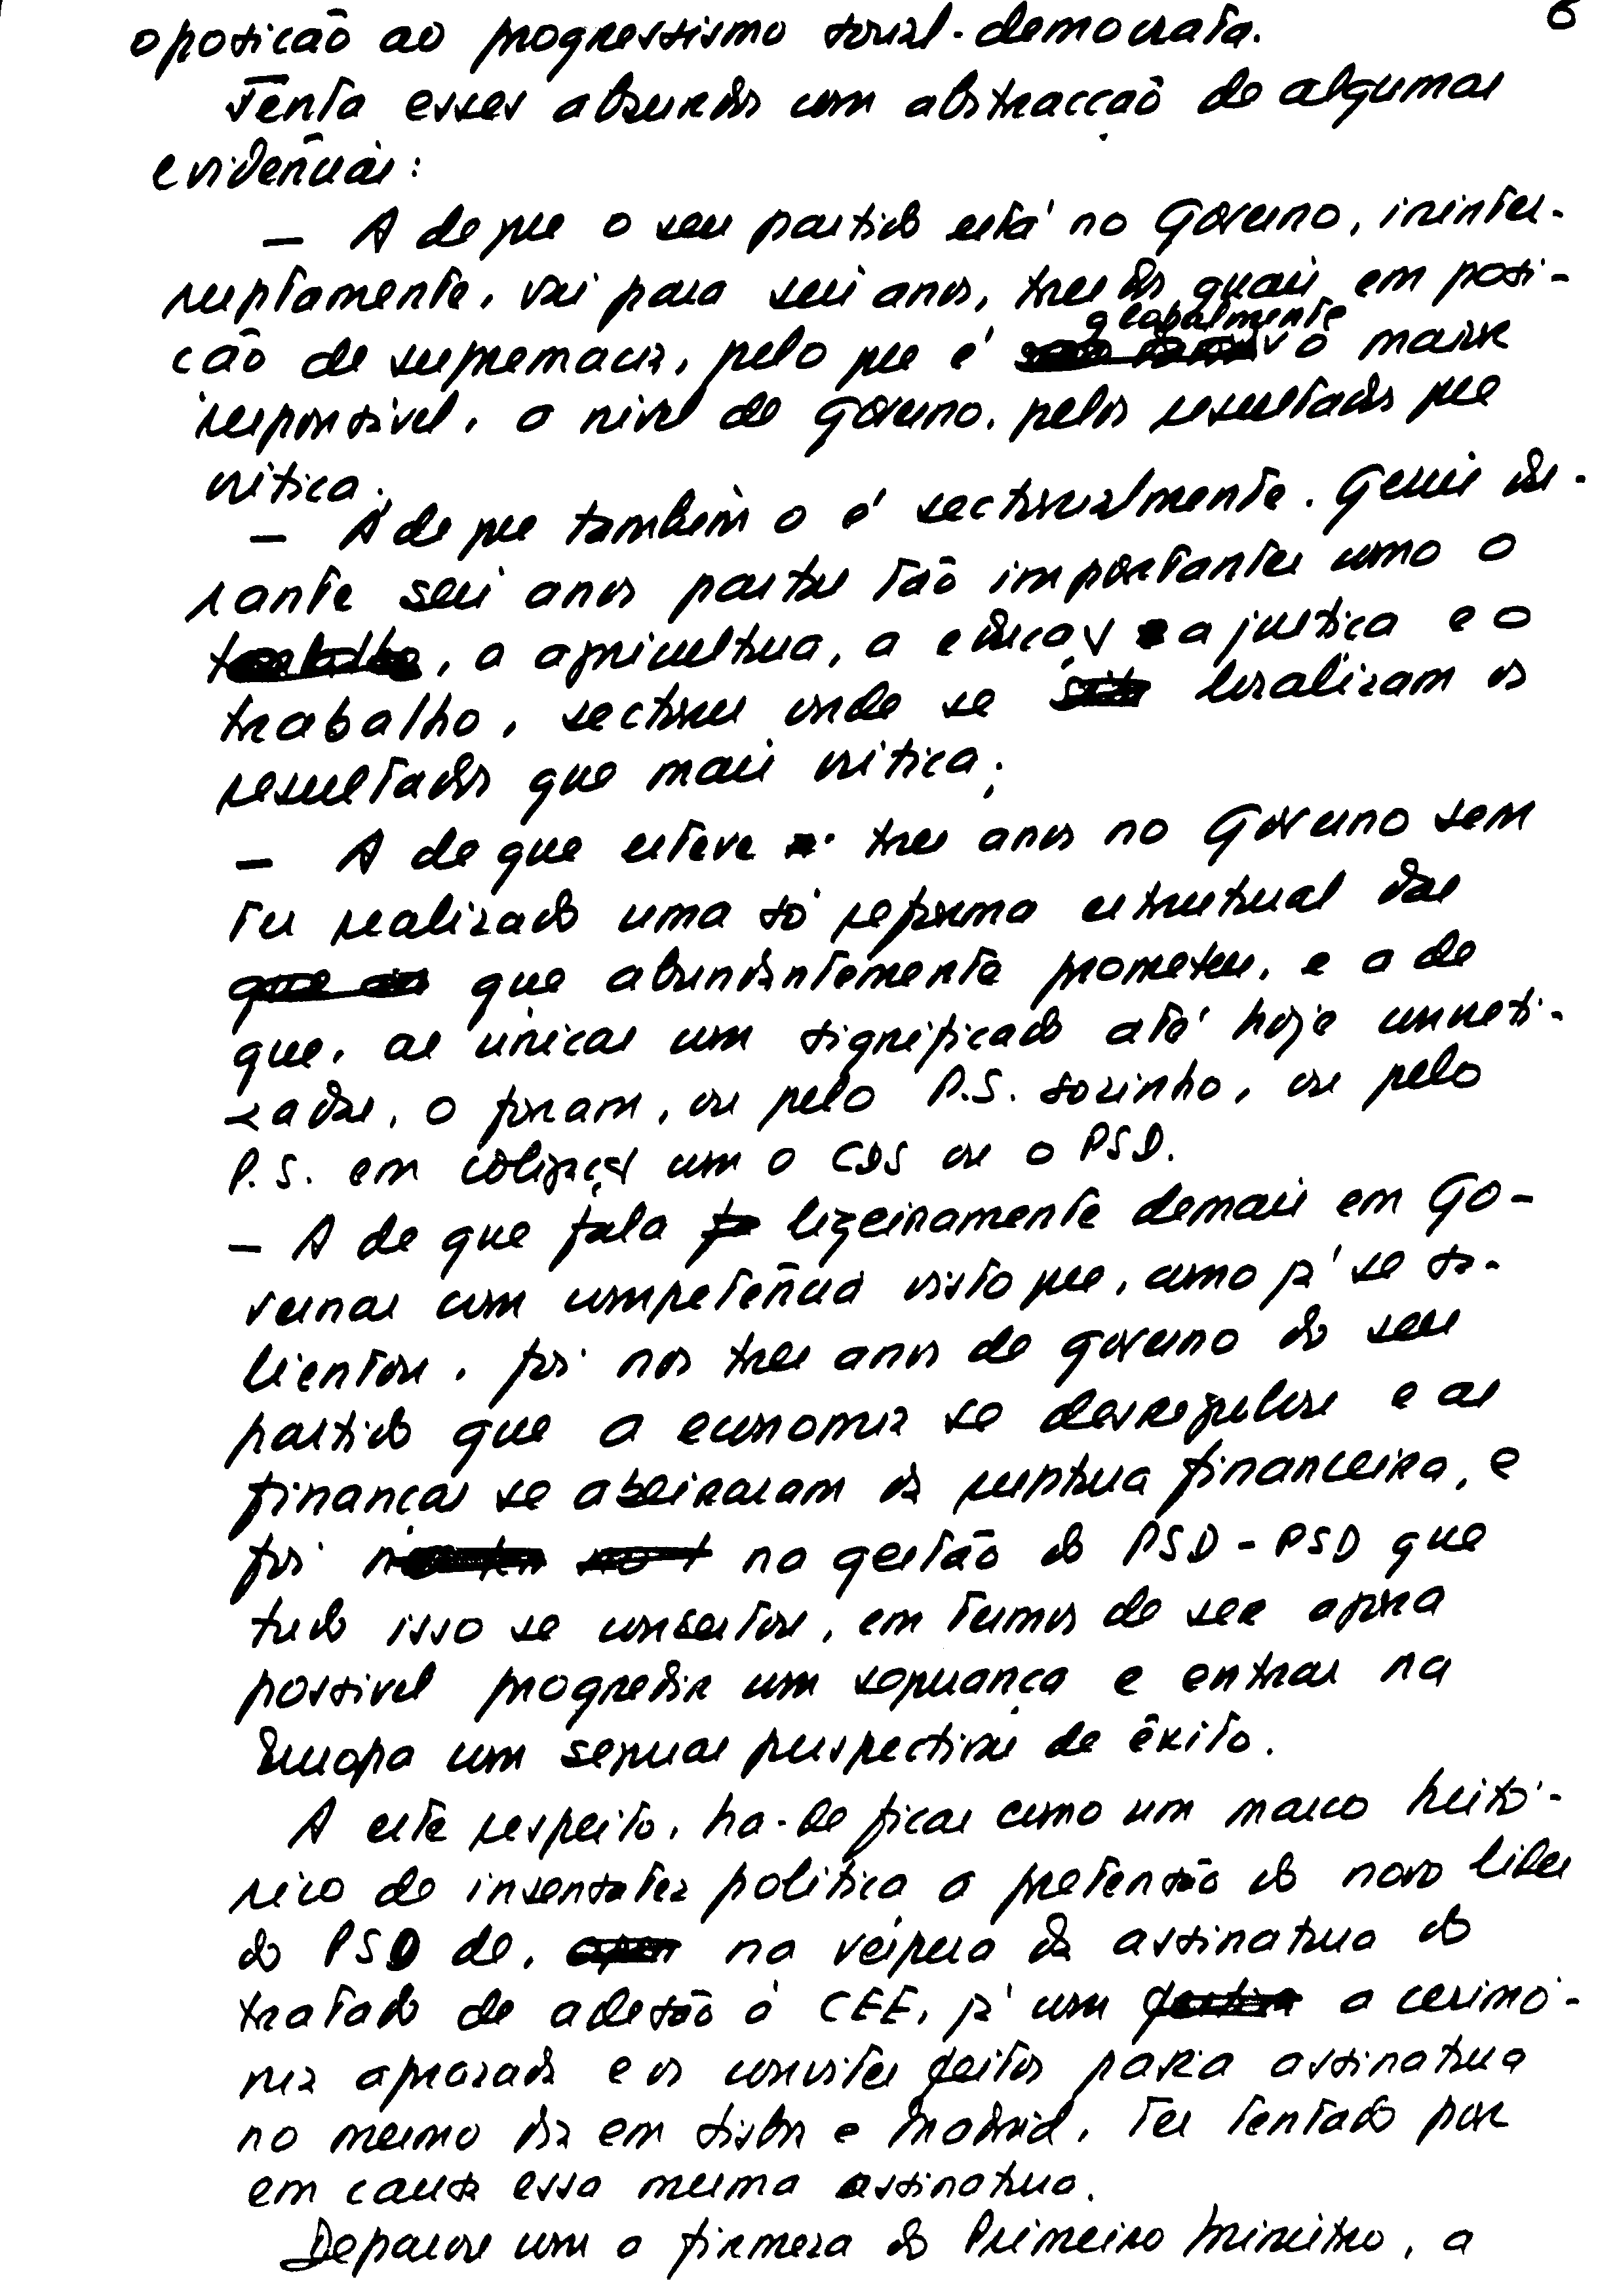 6
oposição ao progressismo social-democrata.
Tenta esses absurdos com abstracção de algumas
evidências:
— A de que o seu partido está no Governo, ininter-
ruptamente, vai para seis anos, tres dos quais em posi-
ção de supremacia, pelo que é globalmente o maior
responsável, a nível de Governo, pelos resultados que
critica.
— A de que também o é sectorialmente. Geriu du-
rante seis anos pastas tão importantes como o
trabalho, a agricultura, a educação e a justiça e o
trabalho, sectores onde se localizam os
resultados que mais critica;
— A de que esteve tres anos no Governo sem
ter realizado uma só reforma estrutural das
que as que abundantemente prometeu, e a de
que, as únicas com significado até hoje concreti-
zadas, o foram, ou pelo P.S. sozinho, ou pelo
P.S. em coligação com o CDS ou o PSD.
— A de que fala ligeiramente demais em Go-
vernar com competência visto que, como já se sa-
lientou, foi nos tres anos de governo do seu
partido que a economia se desregulou e as
finanças se abeiraram da ruptura financeira, e
foi na gestão do PSD-PSD que
tudo isso se consertou, em termos de ser agora
possivel progredir com segurança e entrar na
Europa com seguras perspectivas de êxito.
A este respeito, há-de ficar como um marco histó-
rico de insensatez política a pretensão do novo lider
do PSD de, na véspera da assinatura do
tratado de adesão á CEE, já com a cerimó-
nia aprazada e os convites feitos para assinatura
no mesmo dia em Lisboa e Madrid, ter tentado pôr
em causa essa mesma assinatura.
Deparou com a firmeza do Primeiro Ministro, a